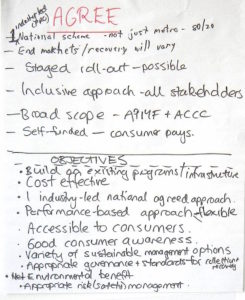 industry led
(NRS)
AGREE
- National scheme - not just metro - 80/20
- End markets/recovery will vary
- Staged roll-out - possible
- Inclusive approach - all stakeholders
- Broad scope - + ACCC
- Self-funded - consumer pays.
OBJECTIVES
• Build on existing programs/infrastructure
• Cost effective
• 1 industry-led national agreed approach.
• Performance-based approach - flexible
• Accessible to consumers.
• Good consumer awareness.
• Variety of sustainable management options
• Appropriate governance + standards for collection +
recovery
• Net Environmental benefit
• Appropriate risk (safety) management